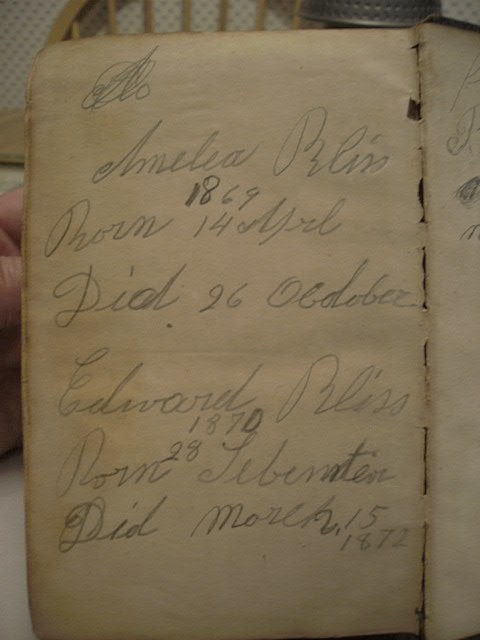 Amelea Bliss
1869
Born 14 Aprl
Did 26 Ocdober
Edward Bliss
1870
Born 28 Sebemter
Did March, 15
1872